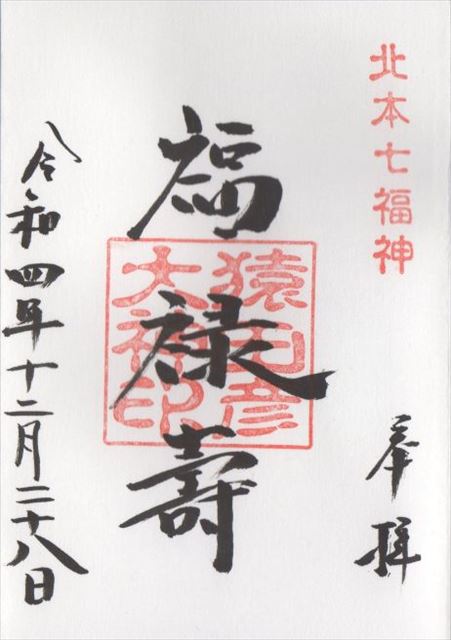 北本七福神
奉拝
福禄壽
猿田彦
大神印
令和四年十二月二十八日